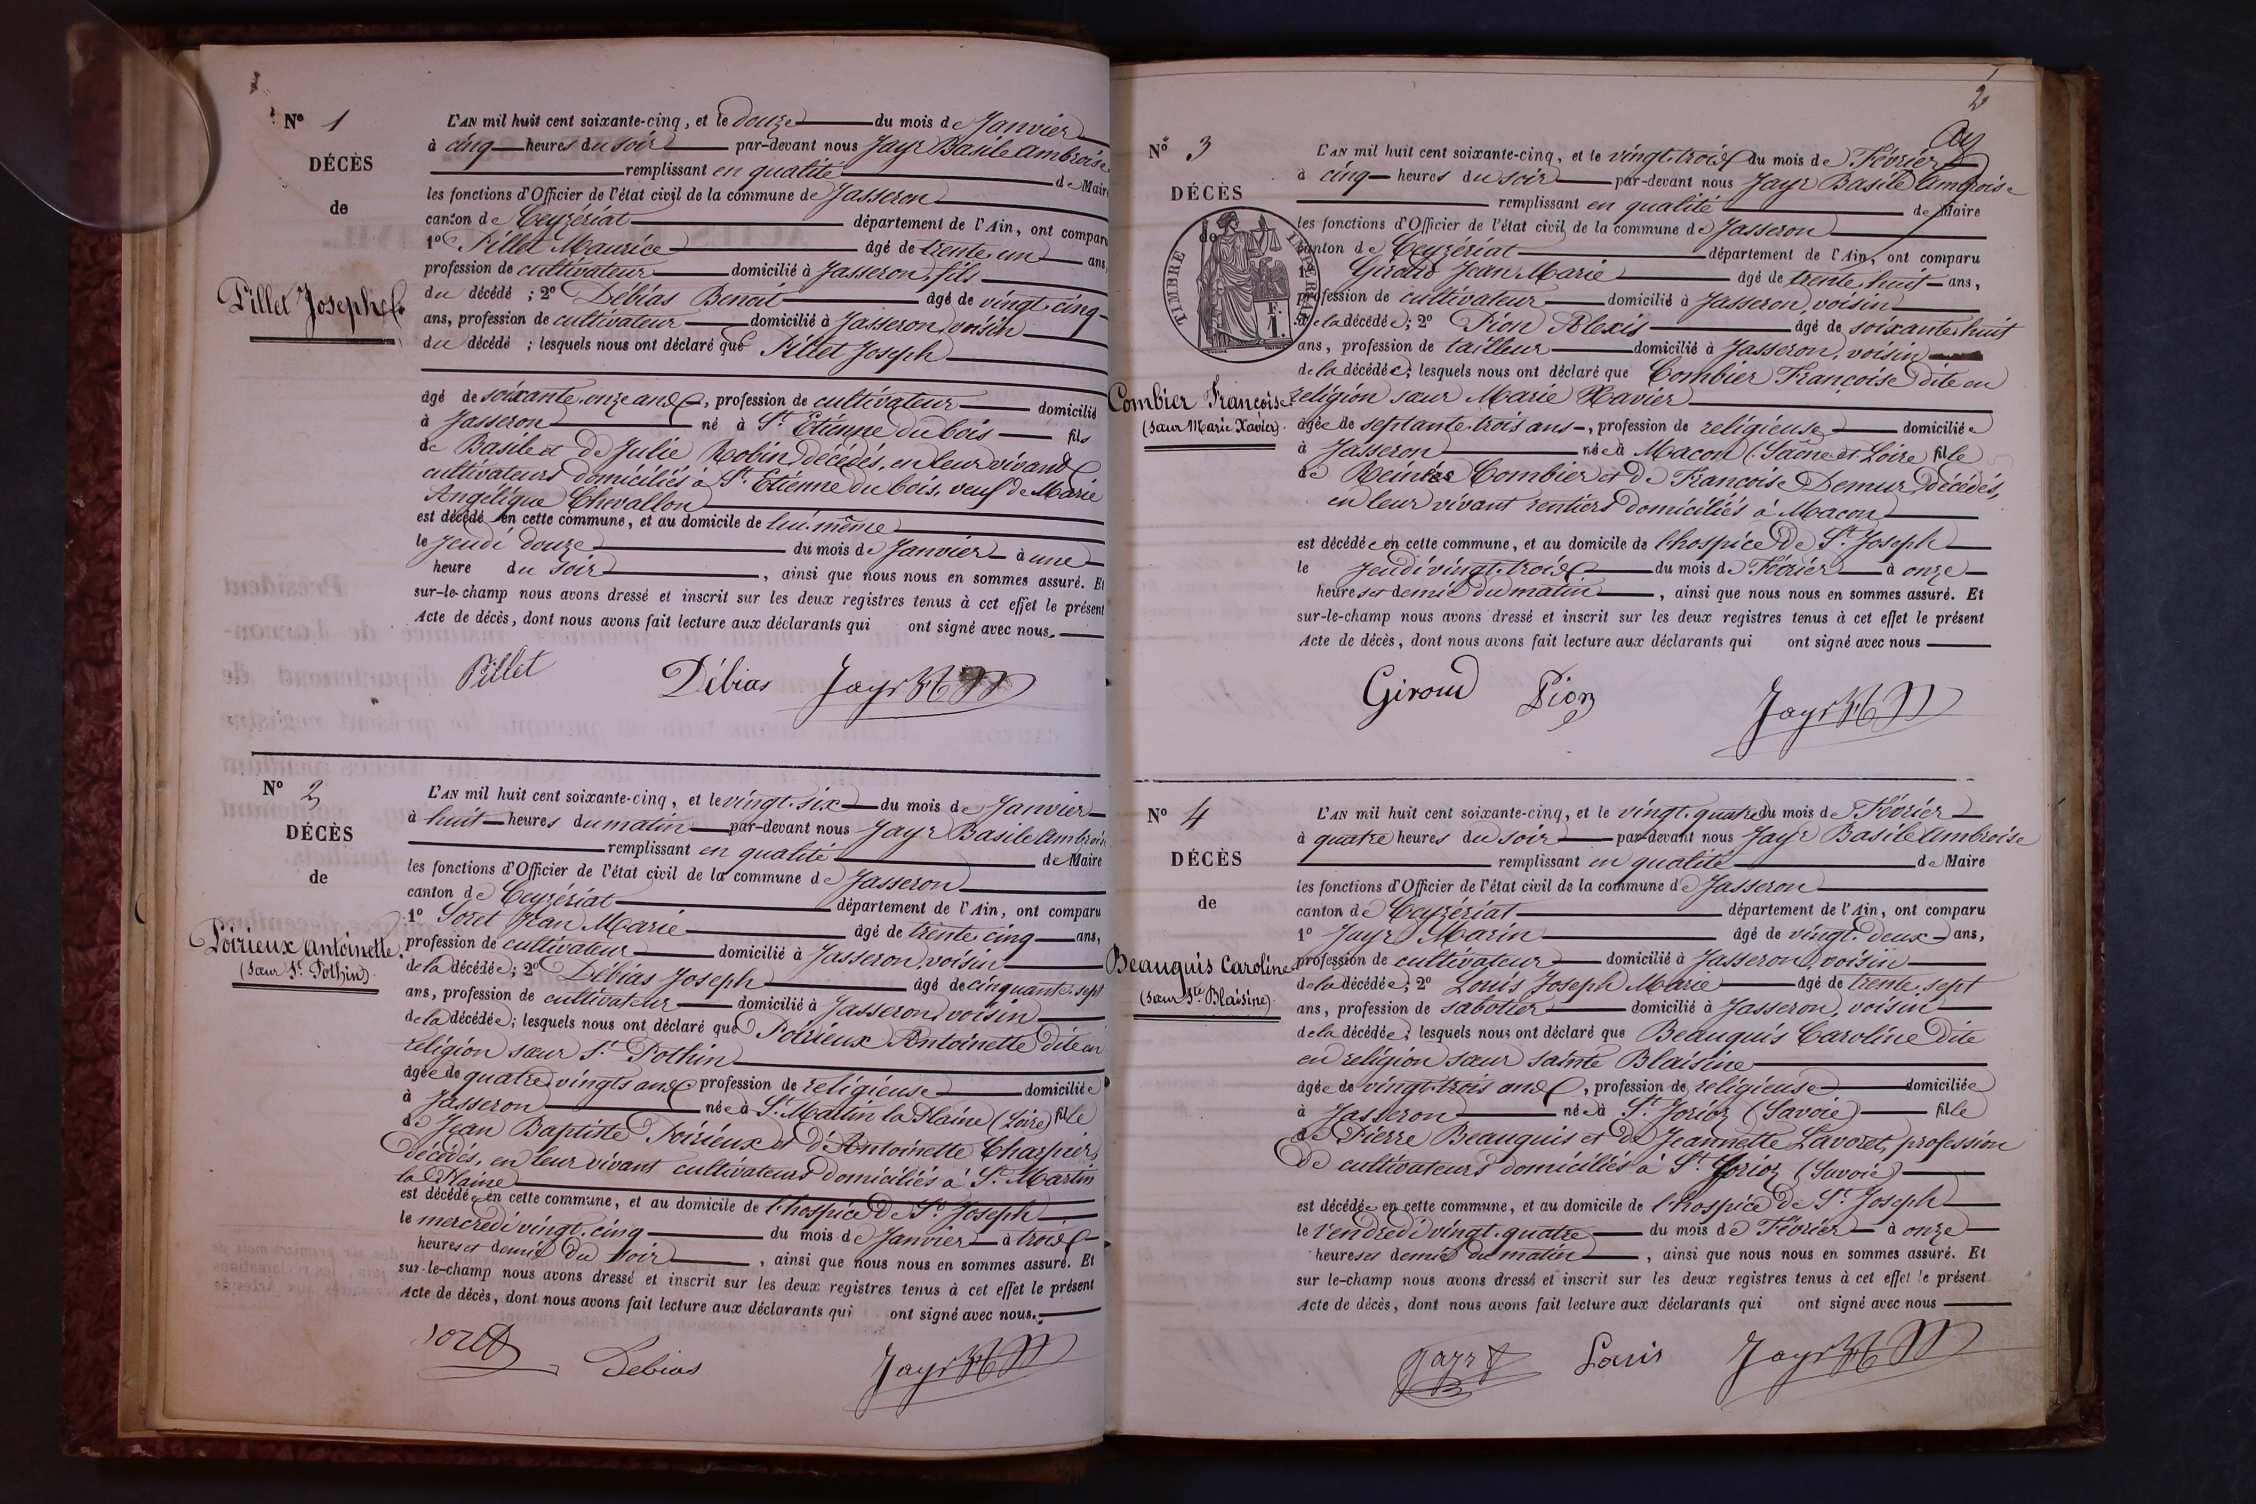 Nº 1
DÉCÈS
de
Pillet Joseph
L'AN mil huit cent soixante-cinq, et le douze du mois de Janvier
à cinq heures du soir par-devant nous Jayr Basile Ambroise
remplissant en qualité de Maire
les fonctions d'Officier de l'état civil de la commune de Jasseron
canton de Ceyzériat département de l'Ain, ont comparu
1º Pillet Maurice âgé de trente un ans,
profession de cultivateur domicilié à Jasseron, fils
du décédé ; 2º Débias Benoit âgé de vingt-cinq
ans, profession de cultivateur domicilié à Jasseron, voisin
du décédé ; lesquels nous ont déclaré que Pillet Joseph
âgé de soixante-onze ans, profession de cultivateur domicilié
à Jasseron né à St Etienne du bois fils
de Basile et de Julie Robin décédés, en leur vivant
cultivateurs domiciliés à St Etienne du bois, veuf de Marie
Angélique Chevallon
est décédé en cette commune, et au domicile de lui-même
le Jeudi douze du mois de Janvier à une
heure du soir, ainsi que nous nous en sommes assuré. Et
sur-le-champ nous avons dressé et inscrit sur les deux registres tenus à cet effet le présent
Acte de décès, dont nous avons fait lecture aux déclarants qui ont signé avec nous.
Pillet Débias Jayr
Nº 2
DÉCÈS
de
Poirieux Antoinette.
(Sœur St Pothin).
L'AN mil huit cent soixante-cinq, et le vingt-six du mois de Janvier
à huit heures du matin par-devant nous Jayr Basile Ambroise
remplissant en qualité de Maire
les fonctions d'Officier de l'état civil de la commune de Jasseron
canton de Ceyzériat département de l'Ain, ont comparu
1º Soret Jean Marie âgé de trente-cinq ans,
profession de cultivateur domicilié à Jasseron, voisin
de la décédée ; 2º Débias Joseph âgé de cinquante-sept
ans, profession de cultivateur domicilié à Jasseron, voisin
de la décédée ; lesquels nous ont déclaré que Poirieux Antoinette dite en
religion sœur St Pothin
âgée de quatre-vingts ans profession de religieuse domiciliée
à Jasseron née à St Martin la Plaine (Loire) fille
de Jean Baptiste Poirieux et d'Antoinette Charpier,
décédés, en leur vivant cultivateurs domiciliés à St Martin
la Plaine
est décédée en cette commune, et au domicile de l'hospice de St Joseph
le mercredi vingt-cinq du mois de Janvier à trois
heures et demie du soir, ainsi que nous nous en sommes assuré. Et
sur-le-champ nous avons dressé et inscrit sur les deux registres tenus à cet effet le présent
Acte de décès, dont nous avons fait lecture aux déclarants qui ont signé avec nous.
Soret Debias Jayr
2
Nº 3
DÉCÈS
de
TIMBRE IMPÉRIAL
1 F.
Combier Françoise
(Sœur Marie Xavier).
L'AN mil huit cent soixante-cinq, et le vingt-trois du mois de Février
à cinq heures du soir par-devant nous Jayr Basile Ambroise
remplissant en qualité de Maire
les fonctions d'Officier de l'état civil de la commune de Jasseron
canton de Ceyzériat département de l'Ain, ont comparu
1º Giroud Jean Marie âgé de trente-huit ans,
profession de cultivateur domicilié à Jasseron, voisin
de la décédée ; 2º Pion Alexis âgé de soixante-huit
ans, profession de tailleur domicilié à Jasseron, voisin
de la décédée ; lesquels nous ont déclaré que Combier Françoise dite en
religion sœur Marie Xavier
âgée de septante-trois ans, profession de religieuse domiciliée
à Jasseron née à Macon (Saône et Loire) fille
de Combier et de Françoise Demur, décédés,
en leur vivant rentiers domiciliés à Macon
est décédée en cette commune, et au domicile de l'hospice de St Joseph
le jeudi vingt-trois du mois de Février à onze
heures et demie du matin, ainsi que nous nous en sommes assuré. Et
sur-le-champ nous avons dressé et inscrit sur les deux registres tenus à cet effet le présent
Acte de décès, dont nous avons fait lecture aux déclarants qui ont signé avec nous
Giroud Pion Jayr
Nº 4
DÉCÈS
de
Beauquis Caroline
(Sœur Ste Blaisine).
L'AN mil huit cent soixante-cinq, et le vingt-quatre du mois de Février
à quatre heures du soir par-devant nous Jayr Basile Ambroise
remplissant en qualité de Maire
les fonctions d'Officier de l'état civil de la commune de Jasseron
canton de Ceyzériat département de l'Ain, ont comparu
1º Jayr Marin âgé de vingt-deux ans,
profession de cultivateur domicilié à Jasseron, voisin
de la décédée ; 2º Louis Joseph Marie âgé de trente-sept
ans, profession de sabotier domicilié à Jasseron, voisin
de la décédée ; lesquels nous ont déclaré que Beauquis Caroline dite
en religion sœur sainte Blaisine
âgée de vingt-trois ans, profession de religieuse domiciliée
à Jasseron née à St Jorioz (Savoie) fille
de Pierre Beauquis et de Jeannette Lavoret, profession
de cultivateurs domiciliés à St Jorioz (Savoie)
est décédée en cette commune, et au domicile de l'hospice de St Joseph
le Vendredi vingt-quatre du mois de Février à onze
heures et demie du matin, ainsi que nous nous en sommes assuré. Et
sur le-champ nous avons dressé et inscrit sur les deux registres tenus à cet effet le présent
Acte de décès, dont nous avons fait lecture aux déclarants qui ont signé avec nous
Jayr Louis Jayr